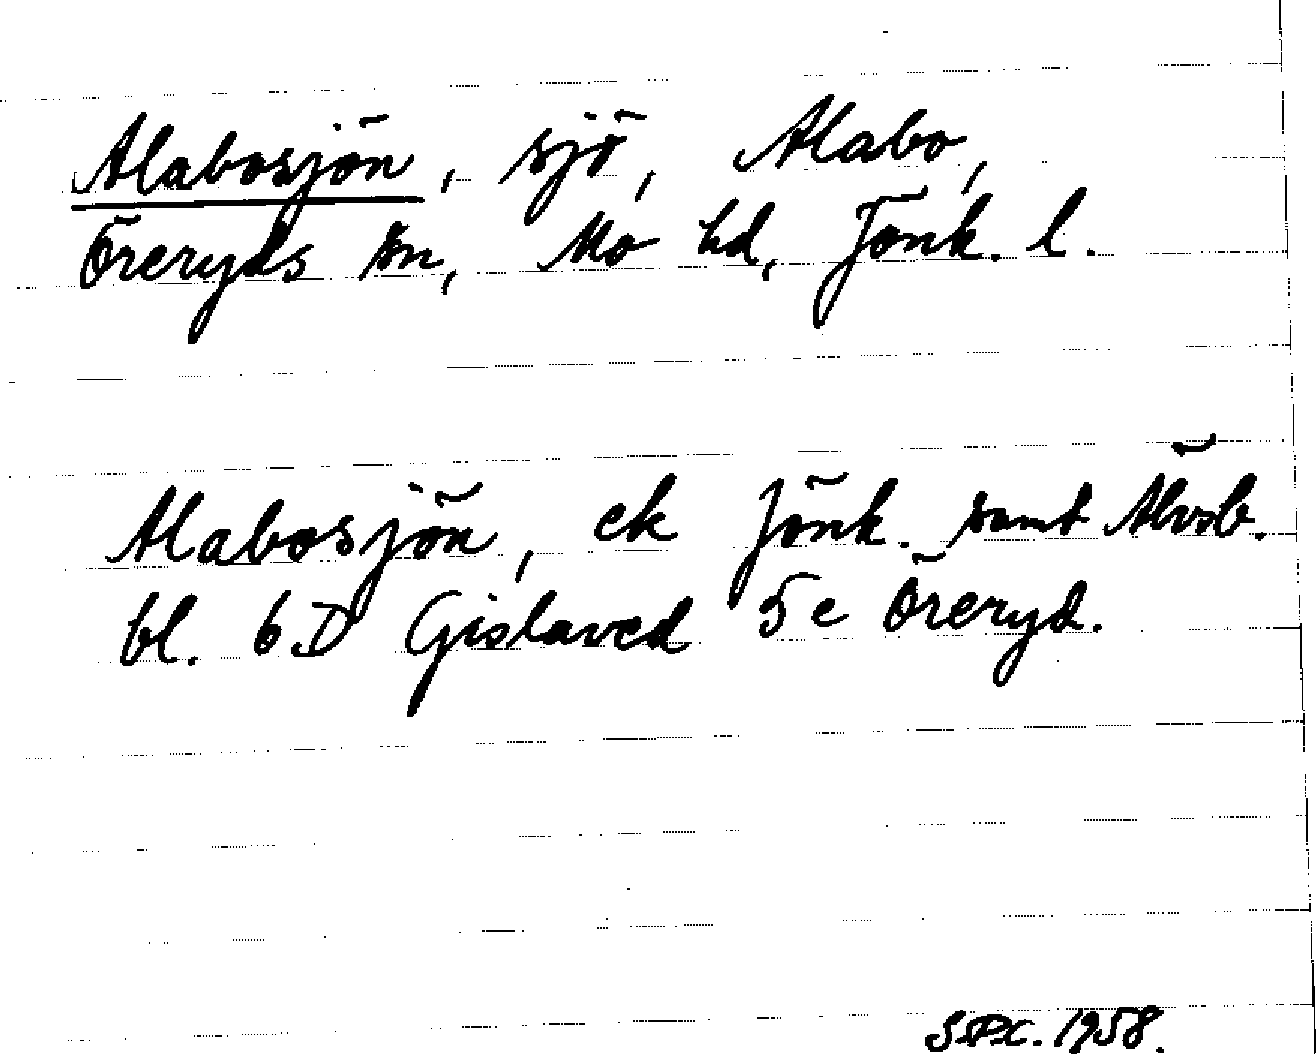 Alabosjön, sjö, Alabo,
Öreryds sn, Mo hd, Jönk. l.
Alabosjön, ek Jönk. samt Älvsb.
bl. 6 D Gislaved 5 e Öreryd.
1958.